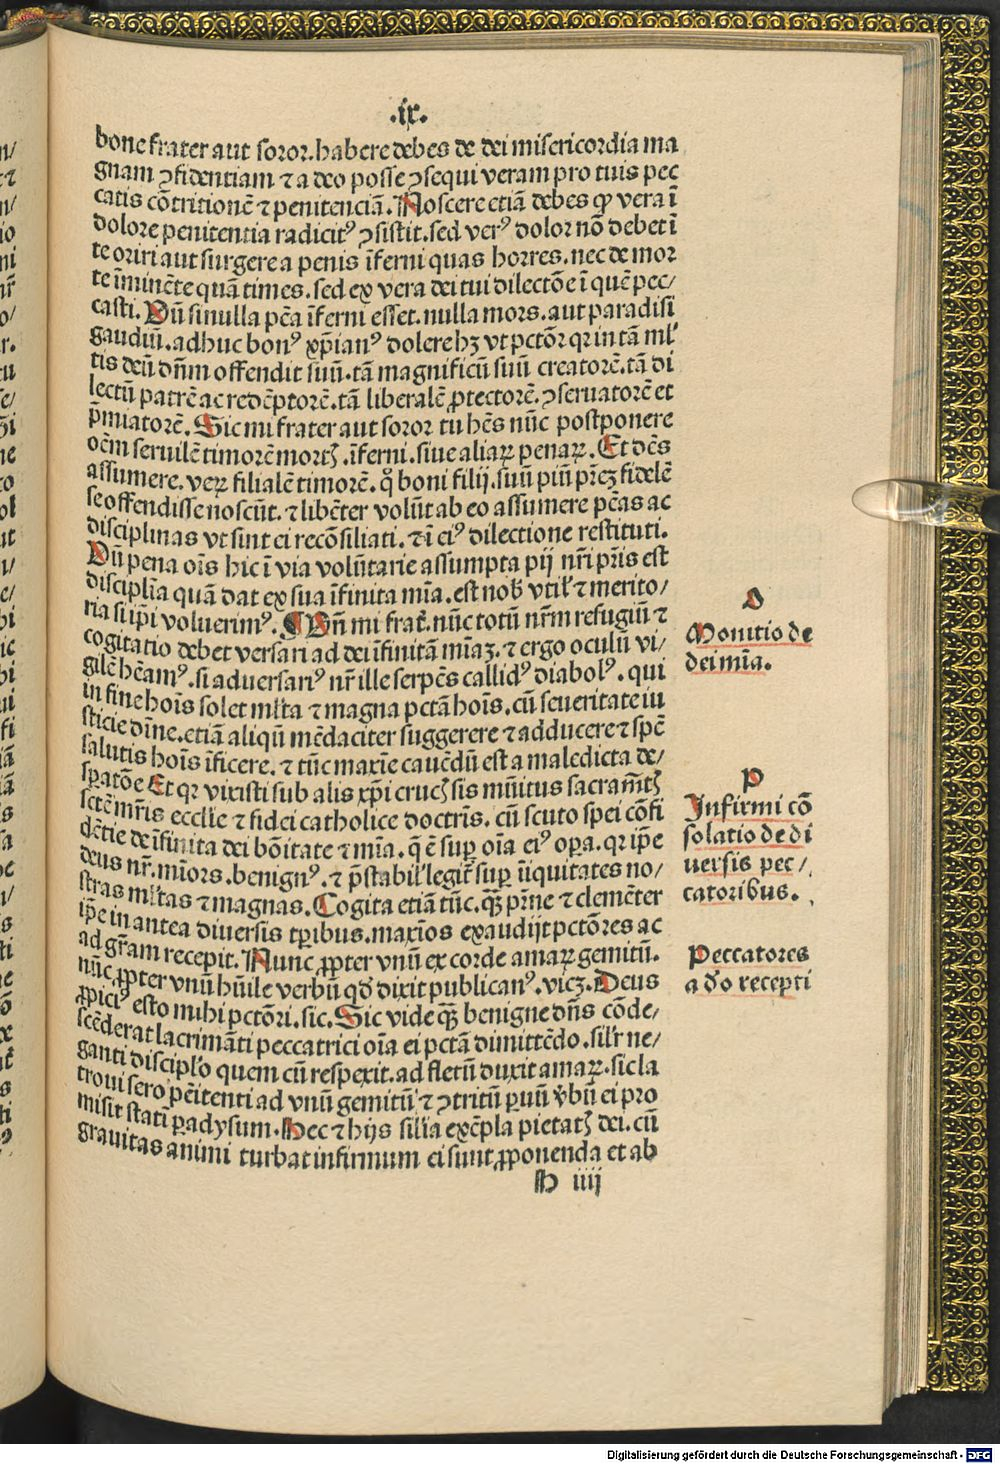 .ix.
bone frater aut soror. habere debes de dei misericordia ma
gnam ꝯfidentiam ⁊ a deo posse ꝯsequi veram pro tuis pec
catis cōtritionē ⁊ penitenciā. Noscere etiā debes ꝙ vera ī
dolore penitentia radicitꝰ ꝯsistit. sed verꝰ dolor nō debet ī
te oriri aut surgere a penis īferni quas horres. nec de mor
te īminēte quā times. sed ex vera dei tui dilectōe ī quē pec/
casti. Vñ si nulla pēa īferni esset. nulla mors. aut paradisi
gaudiū. adhuc bonꝰ xp̄ianꝰ dolere hꝫ vt pctōr qr in tā ml'
tis deū dn̄m offendit suū. tā magnificū suū creatorē. tā di
lectū patrē ac redēptorē. tā liberalē ꝓtectorē. ꝯseruatorē et
p̄miatorē. Sic mi frater aut soror tu hēs nūc postponere
oēm seruilē timorē mortꝭ. īferni. siue aliaꝝ penaꝝ. Et dēs
assumere. veꝝ filialē timorē. q̊ boni filij. suū piū pr̄eꝫ fidelē
se offendisse noscūt. ⁊ libēter volūt ab eo assumere pēas ac
disciplinas vt sint ei recōsiliati. ⁊ ī eiꝰ dilectione restituti.
Vñ pena oīs hic ī via volūtarie assumpta pij nr̄i pr̄is est
disciplīa quā dat ex sua īfinita mīa. est nob̄ vtil' ⁊ merito/
ria si ip̄i voluerimꝰ. ¶ Vñ mi frat̄. nūc totū nr̄m refugiū ⁊
cogitatio debet versari ad dei īfinitā mīaꝫ. ⁊ ergo oculū vi/
gilē hēamꝰ. si aduersariꝰ nr̄ ille serpēs callidꝰ diabolꝰ. qui
in fine hoīs solet ml̄ta ⁊ magna pctā hoīs. cū seueritate iu
sticie dīne. etiā aliqū mēdaciter suggerere ⁊ adducere ⁊ spē
salutis hoīs īficere. ⁊ tūc maxīe cauēdū est a maledicta de/
sꝑatōe Et qr vixisti sub alis xp̄i crucꝭ sis mūitus sacram̄tꝭ
sctē mr̄is ecclīe ⁊ fidei catholice doctrīs. cū scuto spei cōfi
dētie de īfinita dei bōitate ⁊ mīa. q̄ ē suꝑ oīa eiꝰ oꝑa. qr ip̄e
deus nr̄. mīors. benignꝰ. ⁊ p̄stabil' legit̄ suꝑ īiquitates no/
stras ml̄tas ⁊ magnas. Cogita etiā tūc. qꝙ̄ pr̄ne ⁊ clemēter
ip̄e in antea diuersis tꝑibus. maxīos exaudijt pctōres ac
ad gr̄am recepit. Nunc ꝓpter vnū ex corde amaꝝ gemitū.
nūc ꝓpter vnū hūile verbū qd̄ dixit publicanꝰ. vicꝫ. Deus
ꝓpiciꝰ esto mihi pctōri. sic. Sic vide qꝙ̄ benigne dn̄s cōde/
scēderat lacrimāti peccatrici oīa ei pctā dimittēdo. sil'r ne/
ganti discipl'o quem cū respexit. ad fletū duxit amaꝝ. sic la
troui sero pēitenti ad vnū gemitū ⁊ ꝯtritū ꝑuū v̄bū ei pro
misit statī ꝑadysum. Hec ⁊ hijs sil'ia exēpla pietatꝭ dei. cū
grauitas animi turbat infirmum ei sunt ꝓponenda et ab
h iiij
O
Monitio de
dei mīa.
P
Infirmi cō
solatio de di
uersis pec/
catoribus.
Peccatores
a d̄o recepti
Digitalisierung gefördert durch die Deutsche Forschungsgemeinschaft - DFG